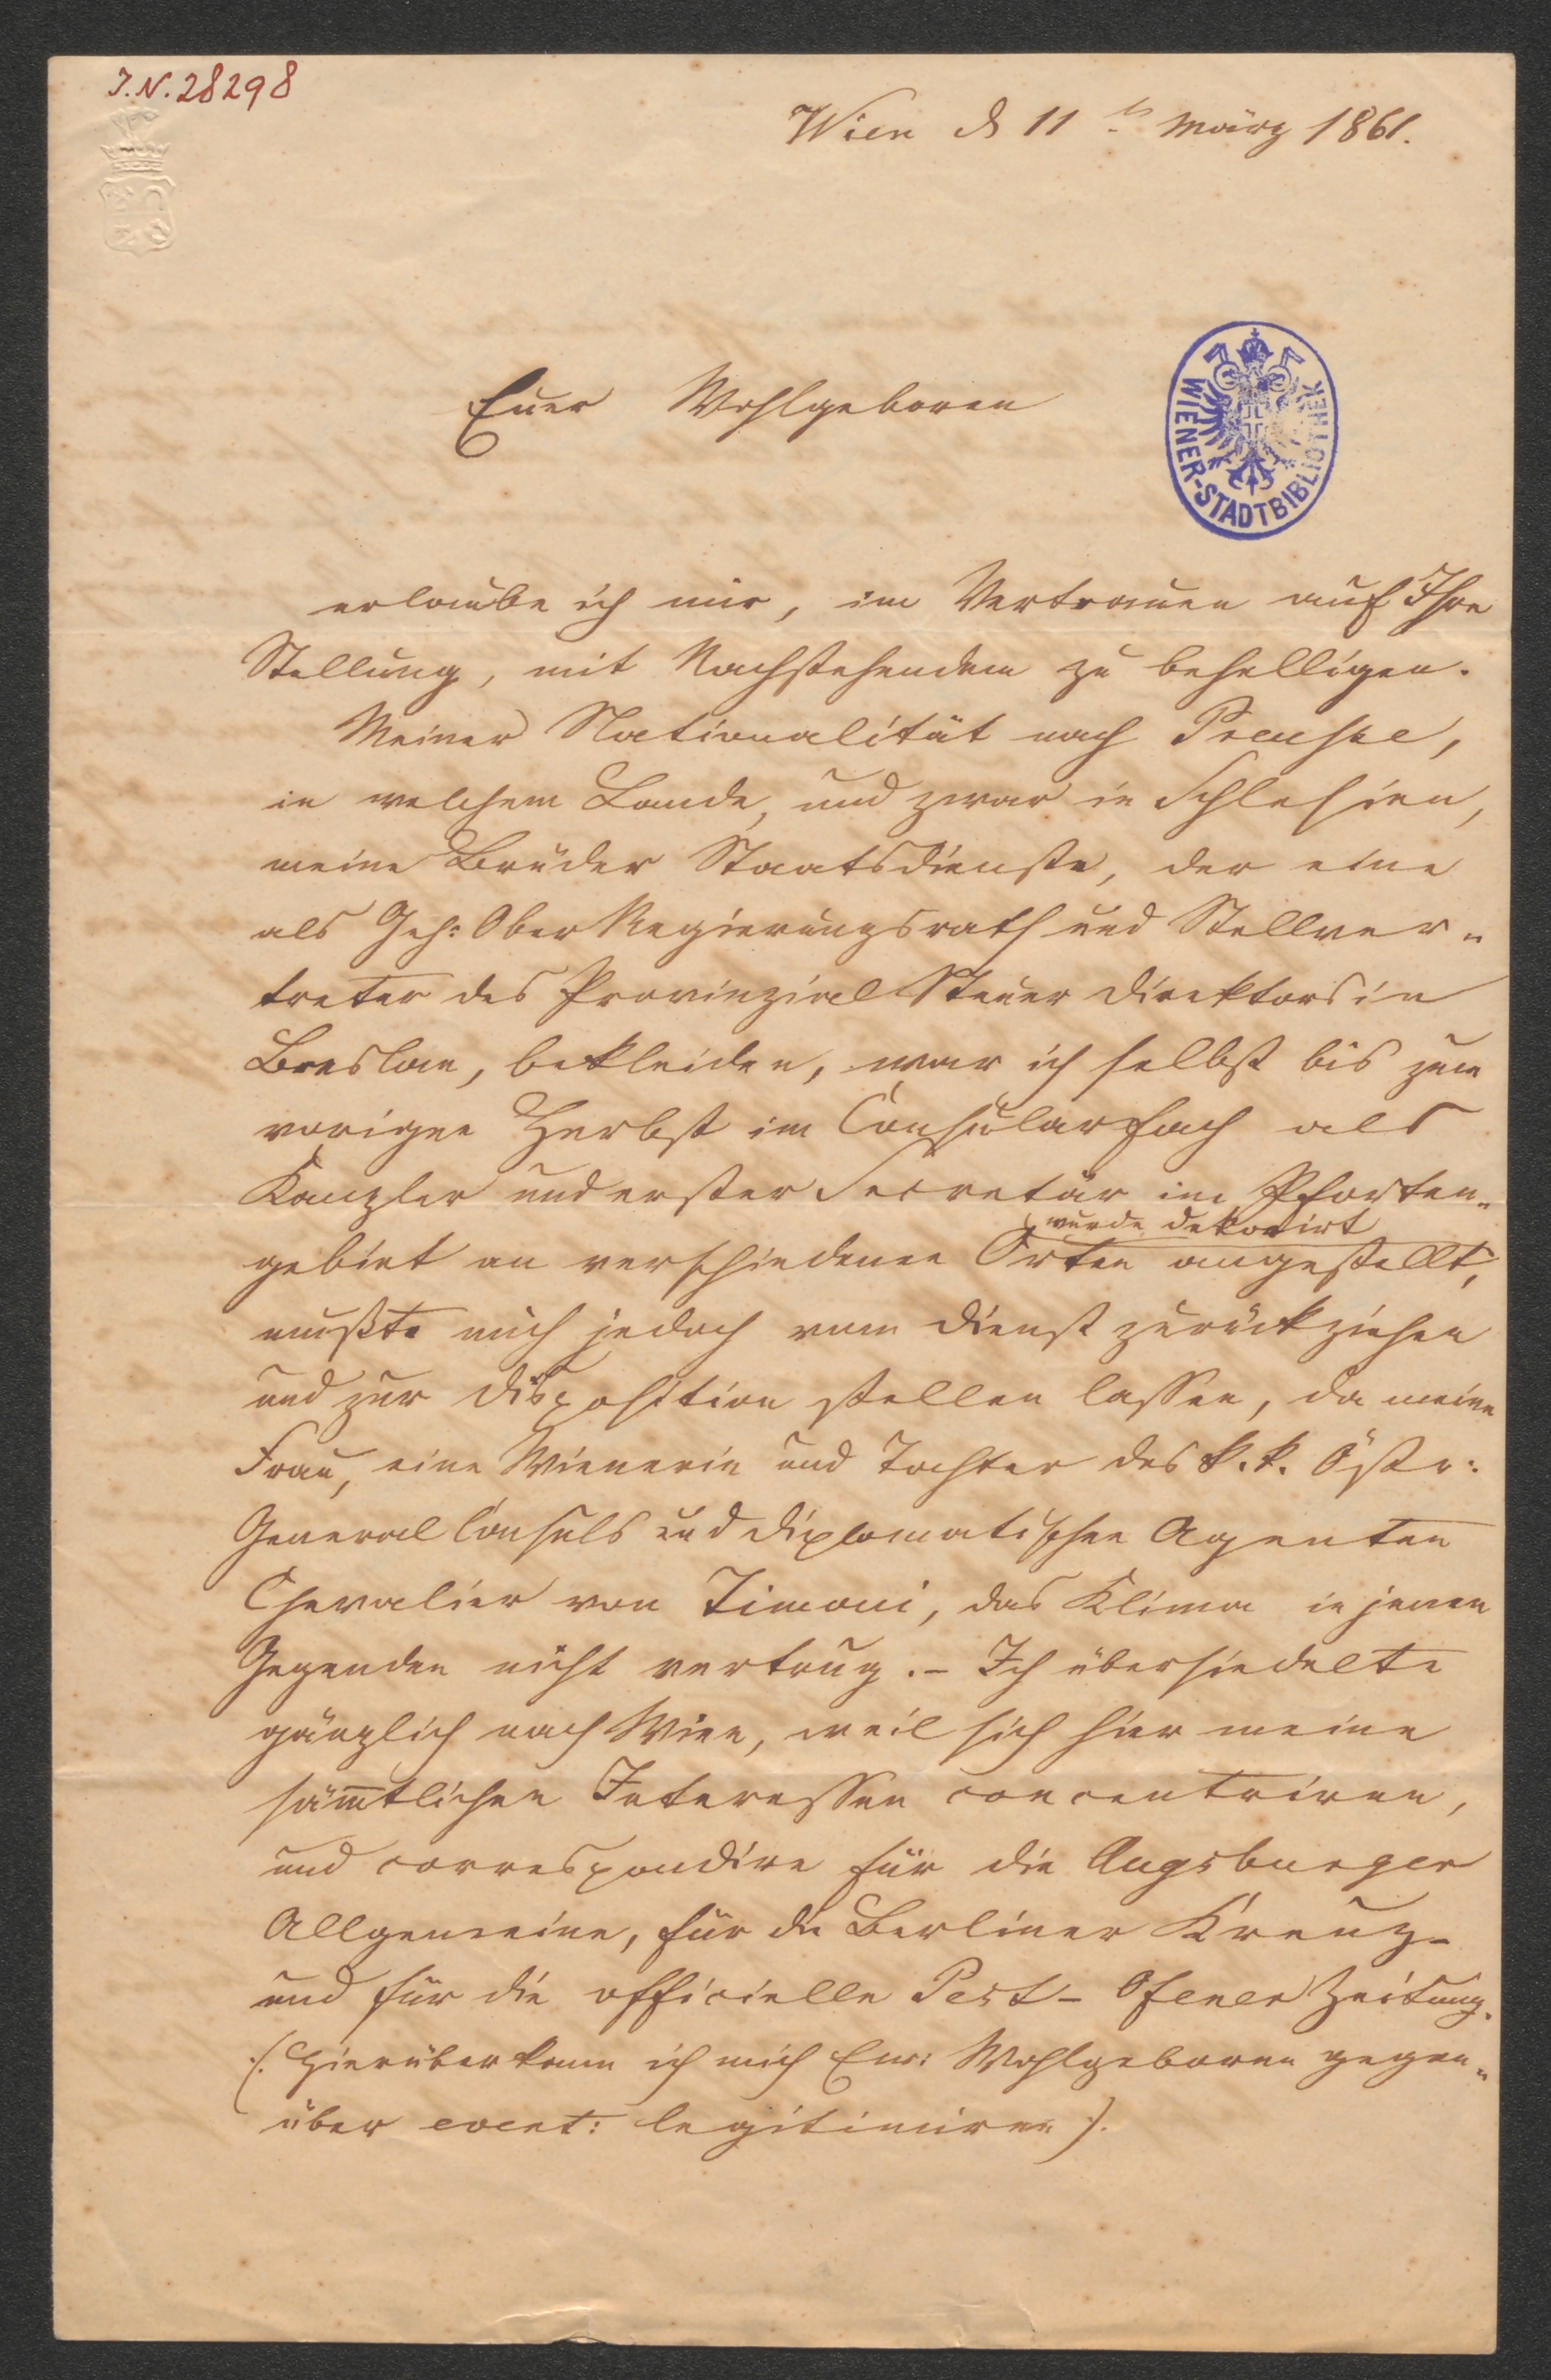 I.N. 28298
Wien d 11ts März 1861.
WIENER-STADTBIBLIOTHEK
Euer Wohlgeboren
erlaube ich mir, im Vertrauen auf Ihre
Stellung, mit Nachstehendem zu behelligen.
Meiner Nationalität nach Preusse,
in welchem Lande, und zwar in Schlesien,
meine Brüder Staatsdienste, der eine
als Geh: Ober Regierungsrath und Stellver-
treter des Provinzial Steuer Direktors in
Breslau, bekleiden, war ich selbst bis zum
vorigen Herbst im Consularfach als
Kanzler und erster Secretär im Pforten-
wurde dekorirt
gebiet an verschiedenen Orten angestellt,
mußte mich jedoch vom Dienst zurückziehen
und zur Disposition stellen lassen, da meine
Frau, eine Wienerin und Tochter des k. k. Östr:
General Consuls und diplomatischen Agenten
Chevalier von Timoni, das Klima in jenen
Gegenden nicht vertrug. – Ich übersiedelte
gänzlich nach Wien, weil sich hier meine
säm̄tlichen Interessen concentriren,
und correspondire für die Augsburger
Allgemeine, für die Berliner Kreuz-
und für die officielle Pest-Ofener Zeitung.
(: Hierüber kann ich mich Euer: Wohlgeboren gegen-
über event: legitimiren :).